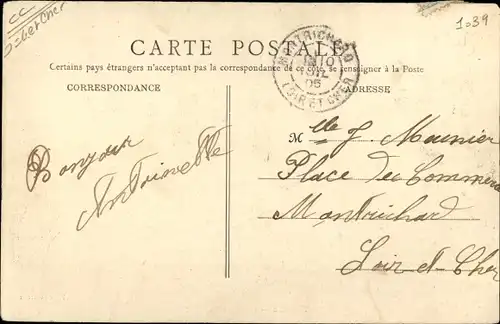 CC
1039
CARTE POSTALE
Certains pays étrangers n'acceptant pas la correspondance de ce côté, se renseigner à la Poste
CORRESPONDANCE
ADRESSE
MONTRICHARD
LOIR ET CHER
05
Bonjour
Antoinette
Mlle J. Meunier
Place du Commerce
Montrichard
Loir-et-Cher